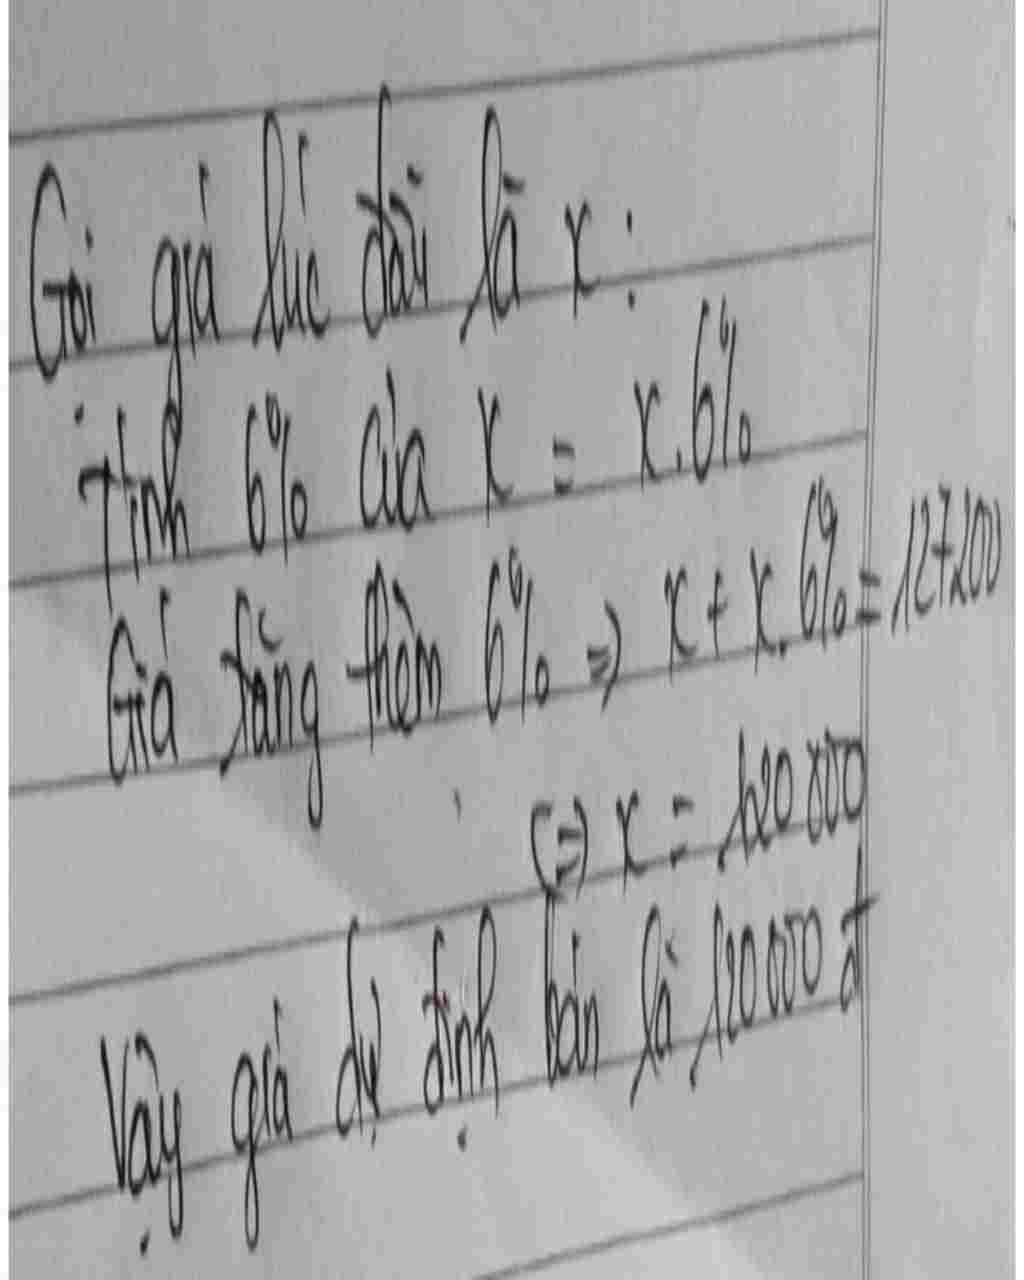 Gọi giá lúc đầu là x:
Tính 6% của x = x.6%
Giá tăng thêm 6% => x + x.6% = 127200
<=> x = 120000
Vậy giá dự định bán là 120000 đ